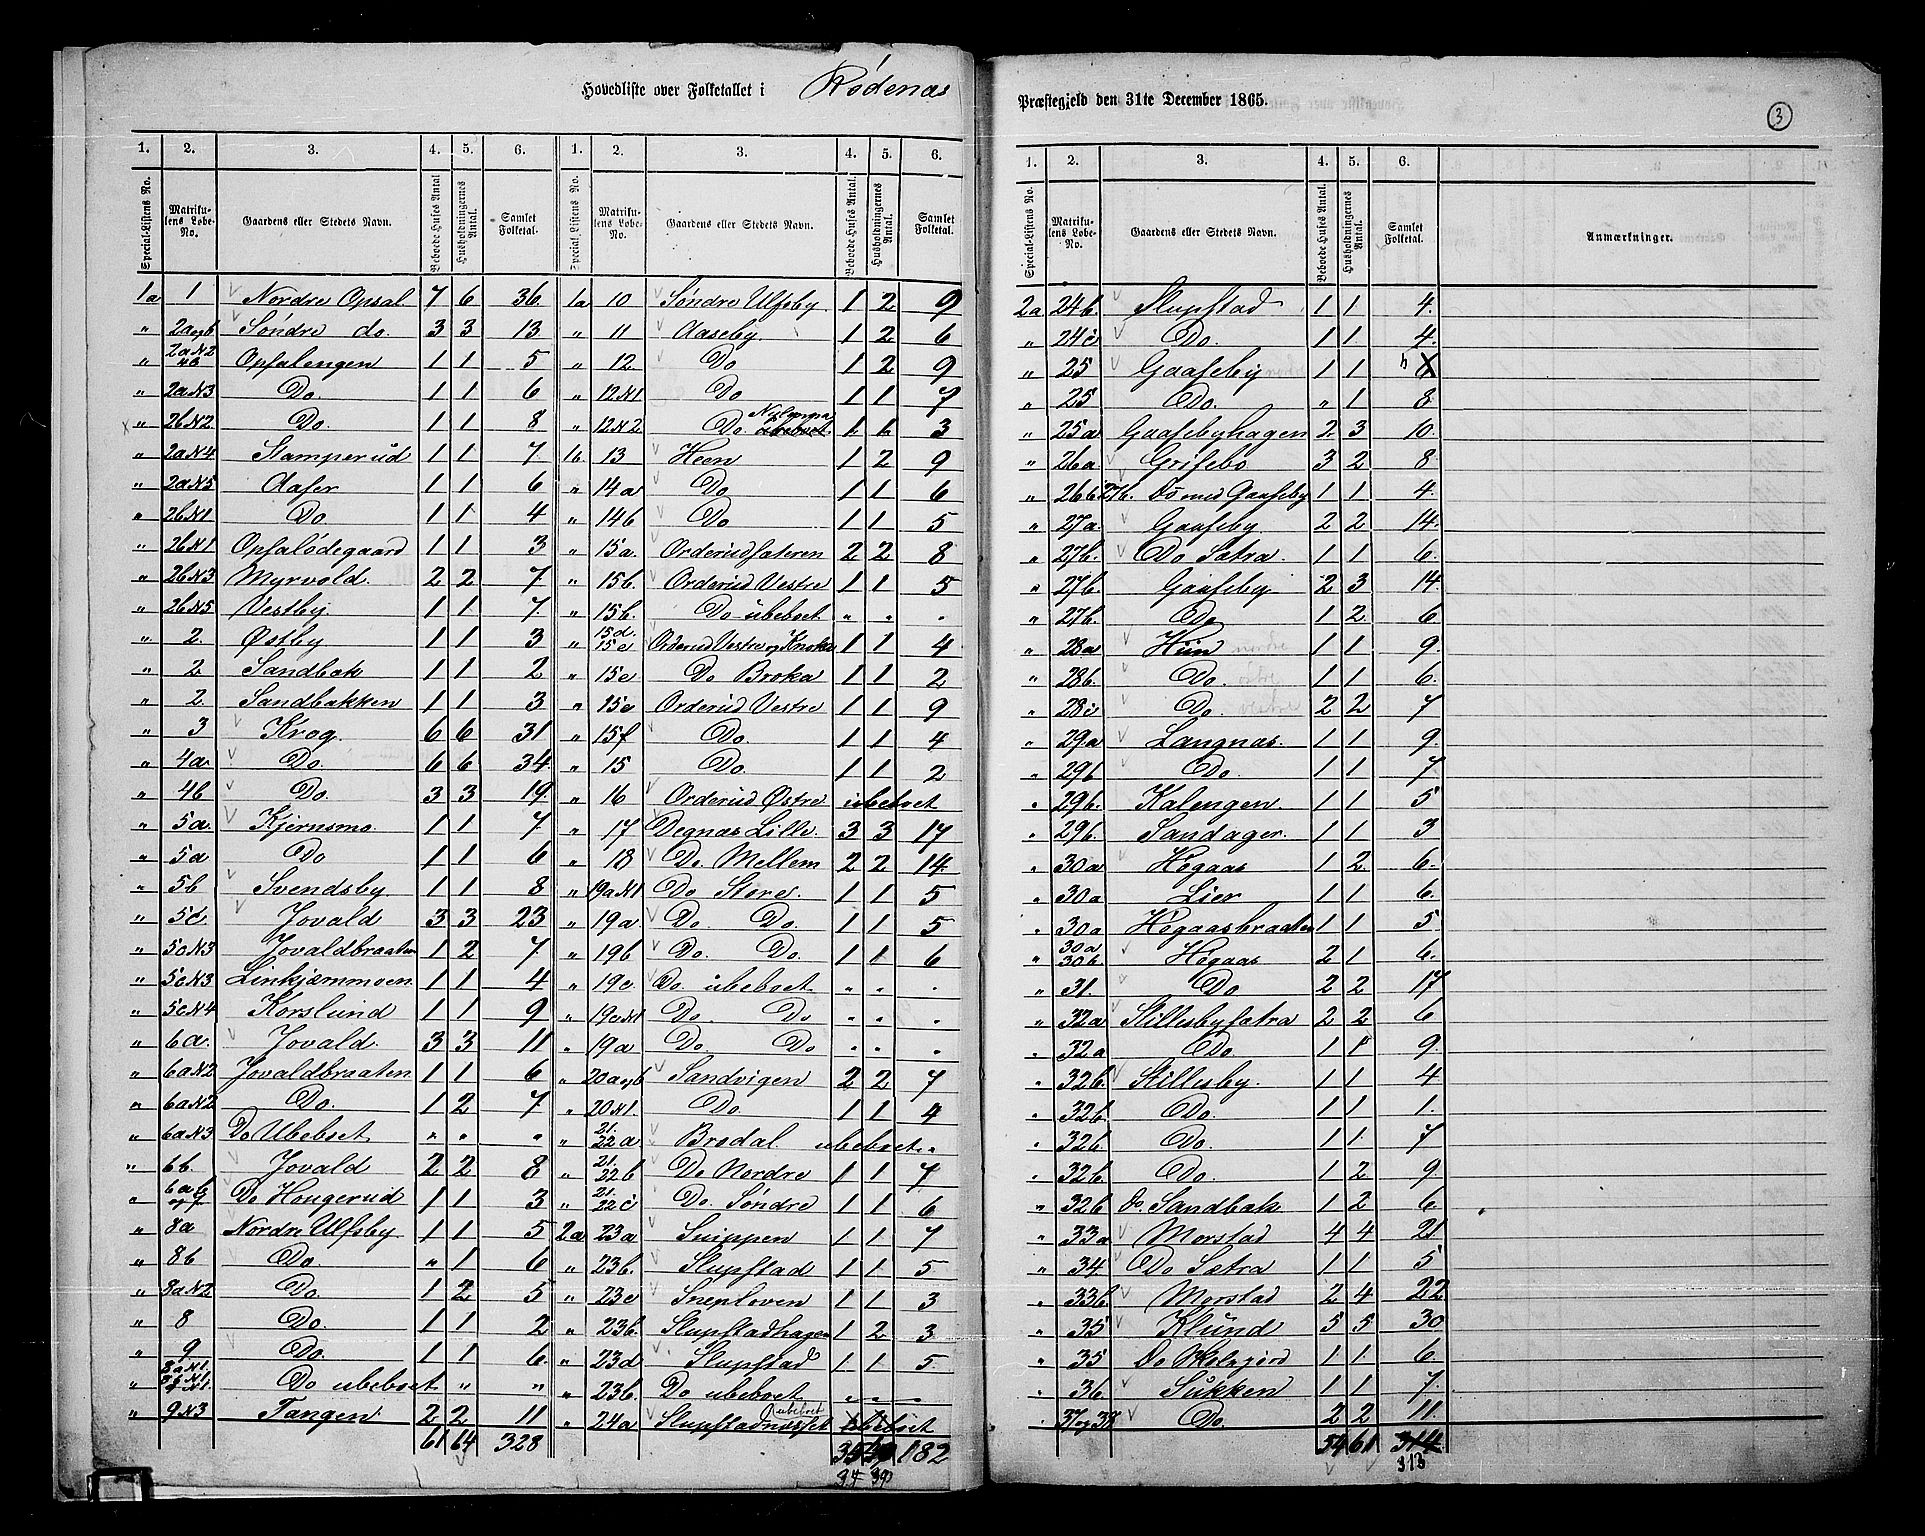 Hovedliste over Folketallet i Rødenæs
1. 2. 3. 4. 5. 6. 1. 2. 3. 4. 5. 6.
Special-Listens No. Matrikulens Løbe-No. Gaardens eller Stedets Navn. Beboede Huses Antal Husholdningernes Antal. Samlet Folketal. Special-Listens No. Matrikulens Løbe-No. Gaardens eller Stedets Navn. Beboede Huses Antal. Husholdningernes Antal. Samlet Folketal.
1a 1 Nordre Opsal 7 6 36 1a 10 Søndre Ulfsby 1 2 9
" 2a og b Søndre do. 3 3 13 " 11 Aaseby 1 2 6
" 2a N2 Opsalengen 1 1 5 " 12 Do 1 2 9
" 2a N3 Do. 1 1 6 " 12 N1 Do 1 1 7
" 2b N2 Do. 1 1 8 " 12 N2 Do. 1 1 3
" 2a N4 Stamperud 1 1 7 1b 13 Heen 1 2 9
" 2a N5 Aaser 1 1 6 " 14a Do 1 1 6
" 2b N1 Do 1 1 4 " 14b Do 1 1 5
" 2b N1 Opsalødegaard 1 1 3 " 15a Orderudsateren 2 2 8
" 2b N3 Myrvold 2 2 7 " 15b. Orderud Vestre 1 1 5
" 2b N5 Vestby 1 1 7 " 15b. Do ubeboet " " "
" 2. Østby 1 1 3 " 15d. 15e Orderud Vestre og Knoka 1 1 4
" 2 Sandbak 1 1 2 " 15e Do Broka 1 1 2
" 2 Sandbakken 1 1 3 " 15e Orderud Vestre 1 1 9
" 3 Krog. 6 6 31 " 15f Do. 1 1 4
" 4a Do. 6 6 34 " 15 Do. 1 1 2
" 4b Do. 3 3 19 " 16 Orderud Østre ubeboet
" 5a. Kjernsmo 1 1 7 " 17 Degnæs Lille 3 3 17
" 5a Do 1 1 6 " 18 Do. Mellem 2 2 14
" 5b Svendsby 1 1 8 " 19a N1 Do Store 1 1 5
" 5c. Jovald 3 3 23 " 19a Do. Do. 1 1 5
" 5c N3 Jovaldbraaten 1 2 7 " 19b Do. Do. 1 1 6
" 5c N3 Linkjæmmoen 1 1 4 " 19c. Do ubeboet " " "
" 5c N4 Korslund 1 1 9 " 19c N1 Do. Do " " "
" 6a. Jovald. 3 3 11 " 19a Do. Do " " "
" 6a N2 Jovaldbraaten 1 1 6 " 20a og b Sandvigen 2 2 7
" 6a N2 Do. 1 2 7 " 20 N1. Do. 1 1 4
" 6a N3 Do Ubeboet " " " " 21. 22a Brodal ubeboet "
" 6b. Jovald 2 2 8 " 21. 22b Do Nordre 1 1 7
" Do Hougerud 1 1 3 " 21. 22c Do. Søndre 1 1 6
" 8a Nordre Ulfsby 1 1 5 2a 23a Snippen 1 1 7
" 8b Do. " 1 6 " 23b. Slupstad 1 1 5
" 8a N2 Do. 1 2 5 " 23c Sneploven 1 1 3
" 8 Do. 1 1 2 " 23b Slupstadhagen 1 2 3
" 9 Do. 1 1 6 " 23d Slupstad 1 1 5
" Do ubeboet " " " 23b. Do ubeboet " " "
" 9 N3 Tangen 2 2 11 " 24a Slupstadnæsset ubeboet
61 64 328 182
37 39
Præstegjeld den 31te December 1865.
3
1. 2. 3. 4. 5. 6.
Special-Listens No. Matrikulens Løbe-No. Gaardens eller Stedets Navn. Beboede Huses Antal. Husholdningernes Antal. Samlet Folketal. Anmærkninger.
2a 24b. Slupstad 1 1 4.
" 24c Do. 1 1 4.
" 25 Gaaseby 1 1
" 25 Do. " 1 8
" 25a Gaasebyhagen 2 3 10
" 26a Grisebo 3 2 8
" 26b 27b. Do med Gaaseby 1 1 4.
" 27a. Gaaseby 2 2 14
" 27b. Do Sætra. 1 1 6.
" 27b. Gaaseby 2 3 14.
" 27b. Do 1 2 6
" 28a Hün nordre 1 1 9
" 28b. Do. østre 1 1 6.
" 28c Do. vestre 2 2 7
" 29a Langnæs. 1 1 9.
" 29b Do. 1 1 7
" 29b. Kalengen. 1 1 5
" 29b. Sandager. 1 1 3
" 30a Høgaas 1 2 6.
" 30a Lier 1 1 6.
" 30a Høgaasbraaten 1 1 5
" 30a 30b Høgaas 2 1 6.
" 31. Do 2 2 17
" 32a Stillesbysætra 2 2 6
" 32a Do. 1 1 9.
" 32b. Stillesby. 1 1 4
" 32b. Do. 1 1 1.
" 32b. Do. 1 1 7
" 32b. Do. 1 2 9.
" 32b do. Sandbak 1 2 6
" 33a Morstad 4 4 21
" 34. Do Sætra 1 1 5
" 33b. Morstad 2 4 22
" 35 Klünd 5 5 30
" 35 Do 1 1 6.
" 36 Sukken 1 1 7.
" 37 og 38 Do. 2 2 11.
54 61 314
313